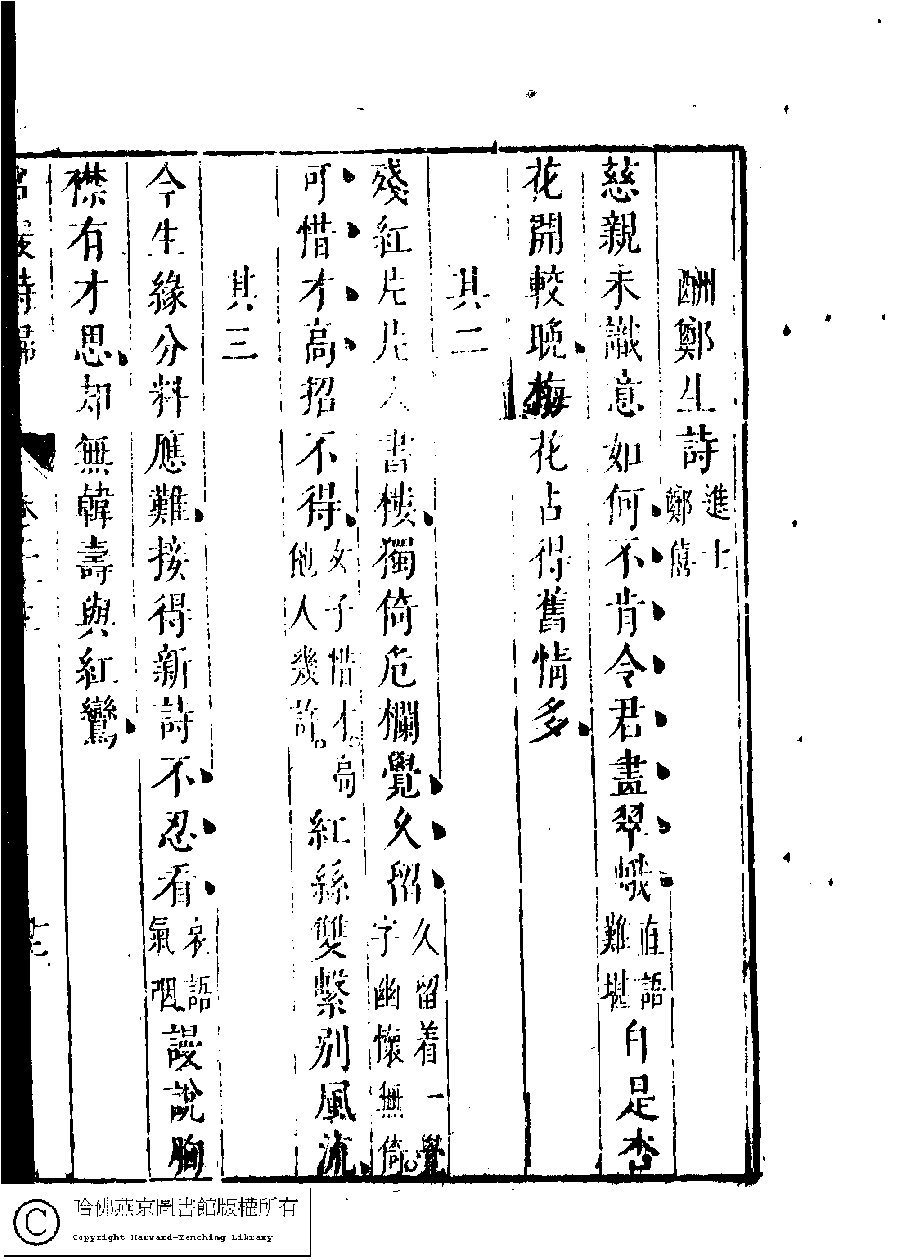 酬鄭生詩進士鄭僖
慈親未識意如何不肯令君畫翠蛾直語難堪自是杏
花開較晚梅花占得舊情多
其二
殘紅片片入書樓獨倚危欄覺久留久留着一覺字幽懷無倚
可惜才高招不得女子惜才高他人幾許紅絲雙繫別風流
其三
今生緣分料應難接得新詩不忍看哀語氣咽謾說胸
襟有才思却無韓壽與紅鸞
名媛詩歸
哈佛燕京圖書館版權所有
Copyright Harvard-Yenching Library